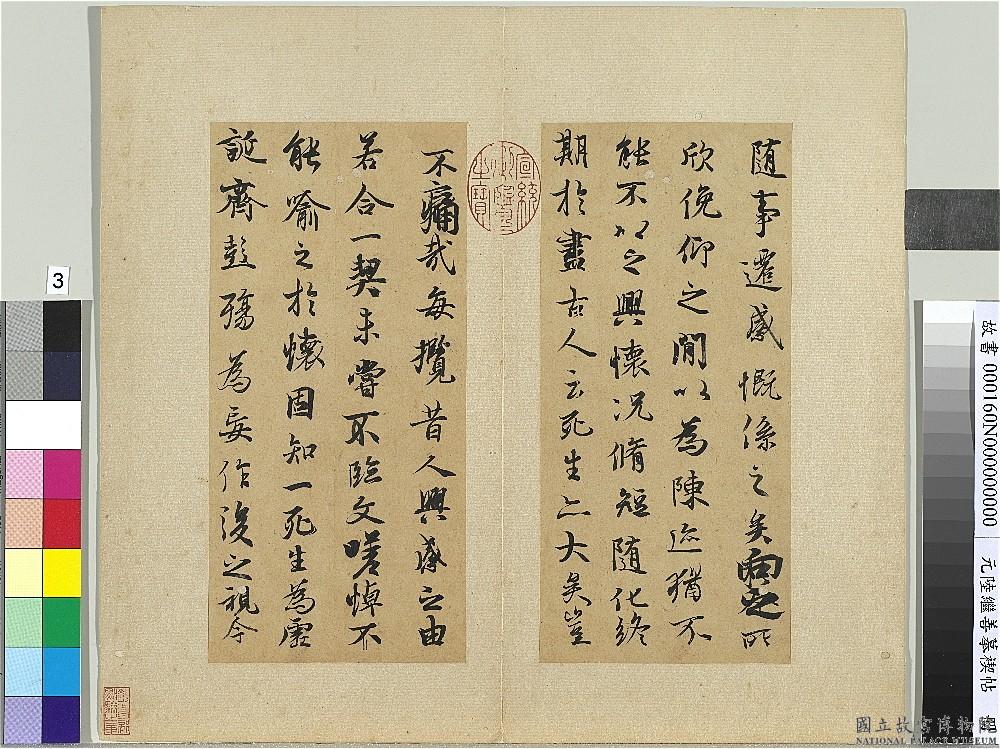 随事遷感慨係之矣向之所
欣俛仰之閒以為陳迹猶不
能不以之興懷況脩短随化終
期於盡古人云死生亦大矣豈
不痛哉每攬昔人興感之由
若合一契未嘗不臨文嗟悼不
能喻之於懷固知一死生為虛
誕齊彭殤為妄作後之視今
宣統御覽之寶
3
故書 000160N000000000
元陸繼善摹禊帖
國立故宮博物院
NATIONAL PALACE MUSEUM